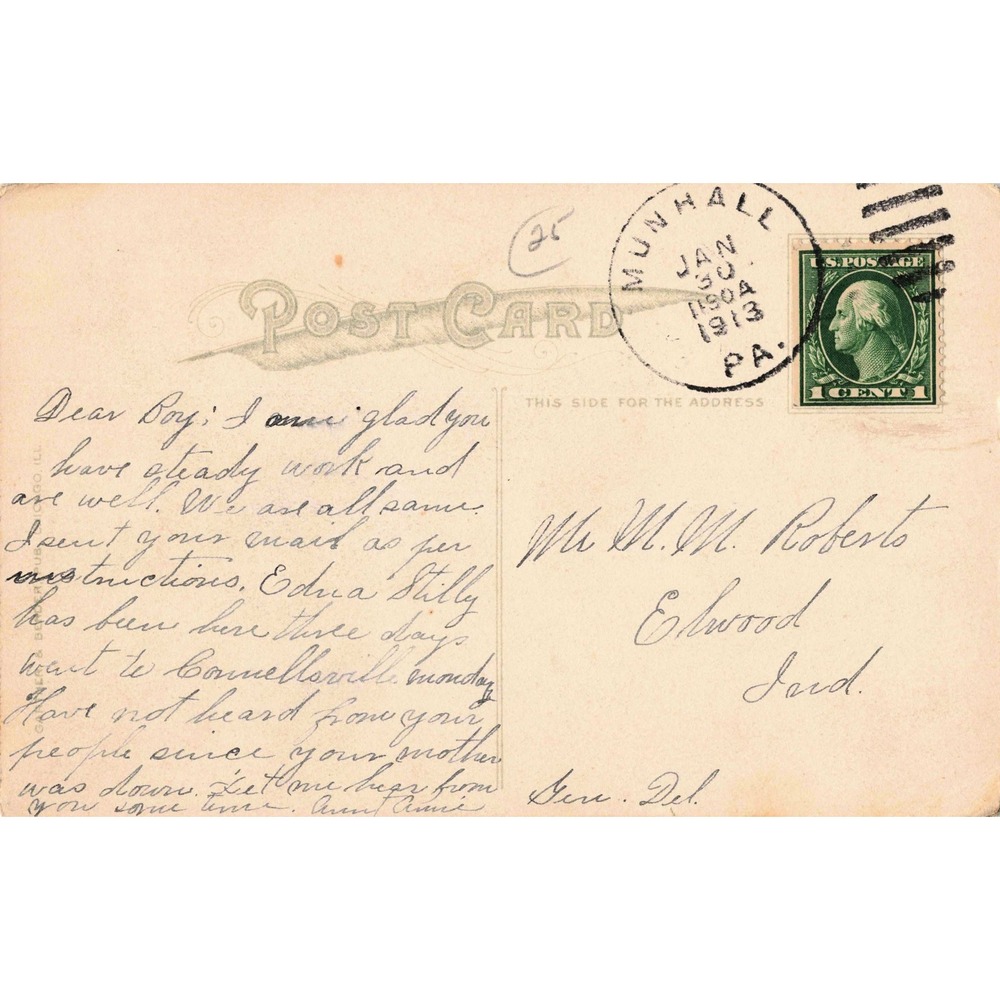 25
MUNHALL
JAN
30
1130A
1913
PA.
U.S.POSTAGE
1 CENT 1
POST CARD
THIS SIDE FOR THE ADDRESS
Dear Boy; I am glad you
have steady work and
are well. We are all same.
I sent your mail as per
instructions. Edna Stilly
has been here three days
went to Connellsville monday
Have not heard from your
people since your mother
was down. Let me hear from
you some time. Aunt Annie
Mr M.M. Roberts
Elwood
Ind.
Gen. Del.